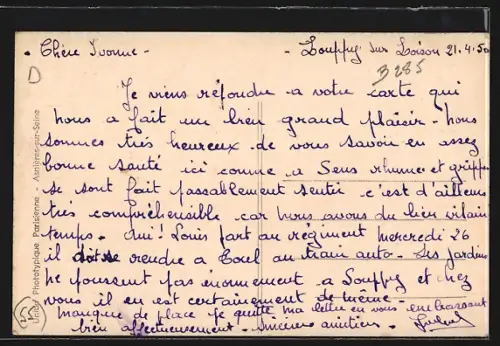 Chère Yvonne -
- Louppy sur Loison 21.4.50
D
B285
Je viens réfondre a votre carte qui
nous a fait un bien grand plaisir - nous
sommes très heureux de vous savoir en assez
bonne santé ici comme a Sens rhume et grippe
se sont fait passablement sentir c'est d'ailleurs
très compréhensible car nous avons du bien vilain
temps. Oui! Louis part au régiment mercredi 26
il doit se rendre a Toul au train auto - Les jardins
ne poussent pas énormement a Louppy et chez
vous il en est certainement de même -
manque de place je quitte ma lettre en vous embrassant
bien affectueusement - sincères amitiés -
Unité Phototypique Parisienne - Asnières-sur-Seine